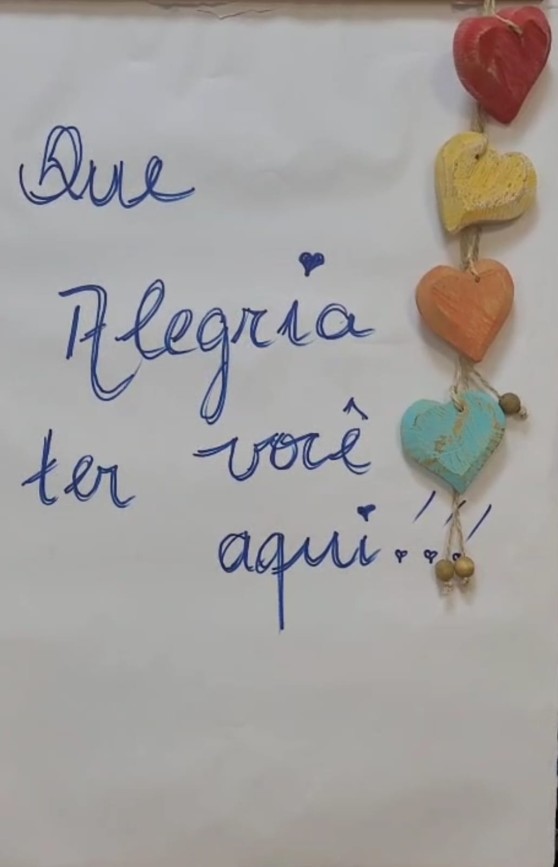 Que
Alegria
ter você
aqui...!!!